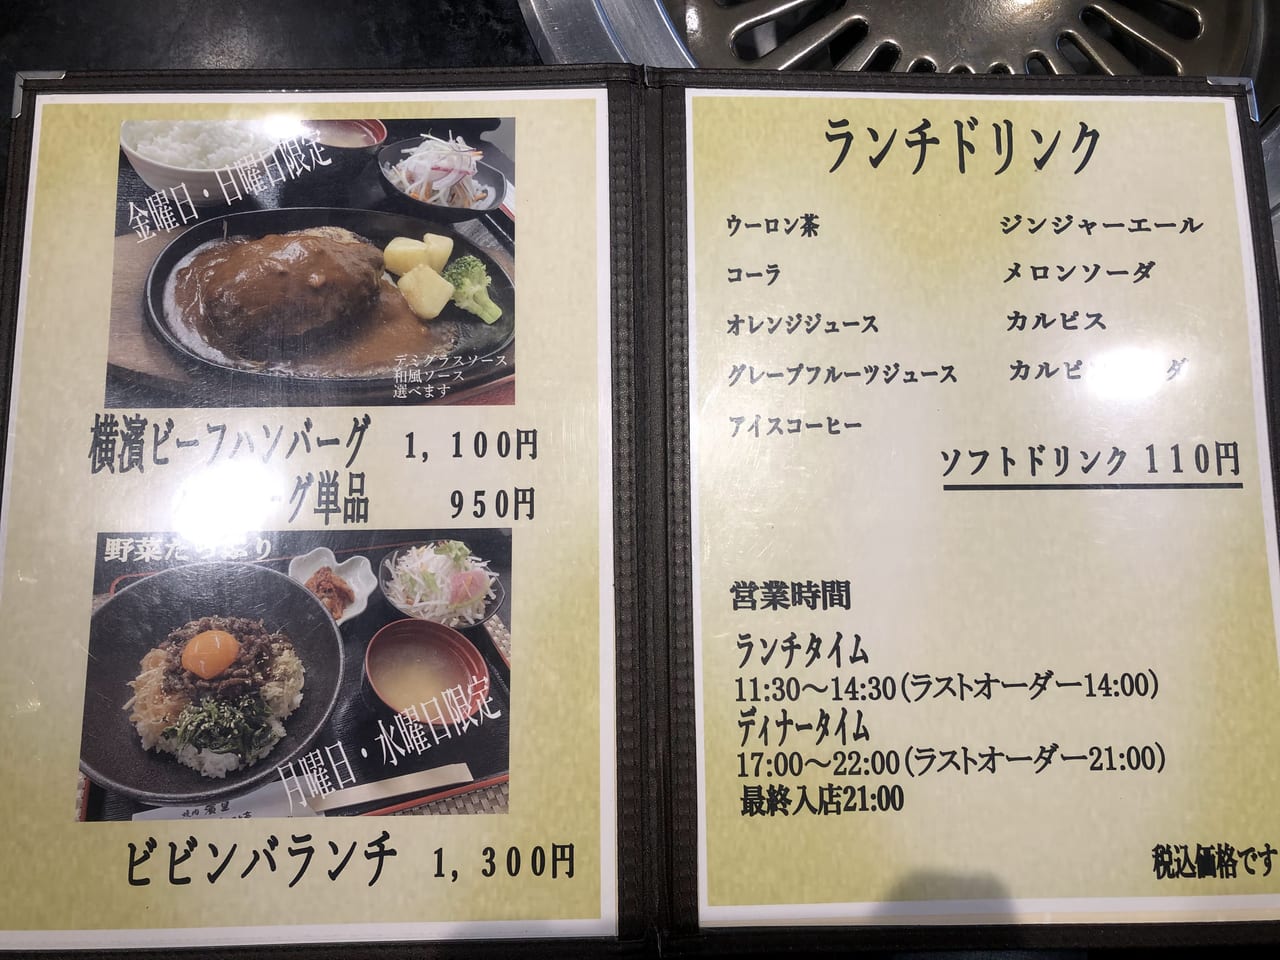 金曜日・日曜日限定
デミグラスソース
和風ソース
選べます
横濱ビーフハンバーグ 1,100円
グ単品 950円
野菜たっぷり
月曜日・水曜日限定
ビビンバランチ 1,300円
ランチドリンク
ウーロン茶
コーラ
オレンジジュース
グレープフルーツジュース
アイスコーヒー
ジンジャーエール
メロンソーダ
カルピス
カルピ ダ
ソフトドリンク 110円
営業時間
ランチタイム
11:30～14:30(ラストオーダー14:00)
ディナータイム
17:00～22:00(ラストオーダー21:00)
最終入店21:00
税込価格です